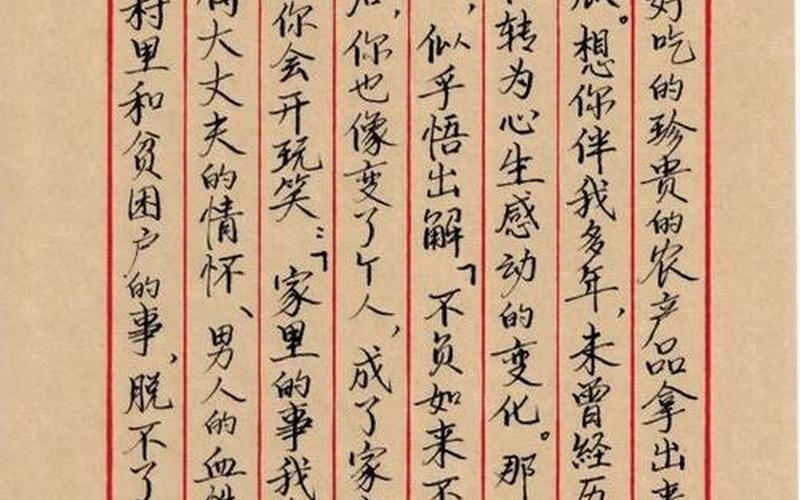 好吃的珍贵的农产品拿出来
。想你伴我多年,未曾经历
转为心生感动的变化。那
,似乎悟出解「不负如来不
,你也像变了个人,成了家
你会开玩笑:「家里的事我
大丈夫的情怀、男人的血性
村里和贫困户的事,脱不了